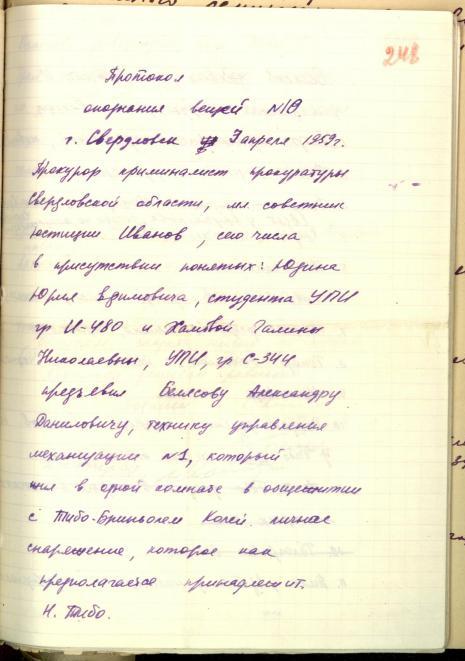 248
Протокол
опознания вещей №
г. Свердловск 7 апреля 1959г.
Прокурор криминалист прокуратуры
Свердловской области, мл советник
юстиции Иванов, сего числа
в присутствии понятых: Юдина
Юрия Вдимовича, студента УПИ
гр И-480 и Хамовой Галины
Николаевны, УПИ, гр С-344
предъявил Белясову Александру
Даниловичу, технику управления
механизации №1, который
жил в одной комнате в общежитии
с Тибо-Бриньолем Колей личное
снаряжение, которое как
предполагается принадлежит.
Н. Тибо.